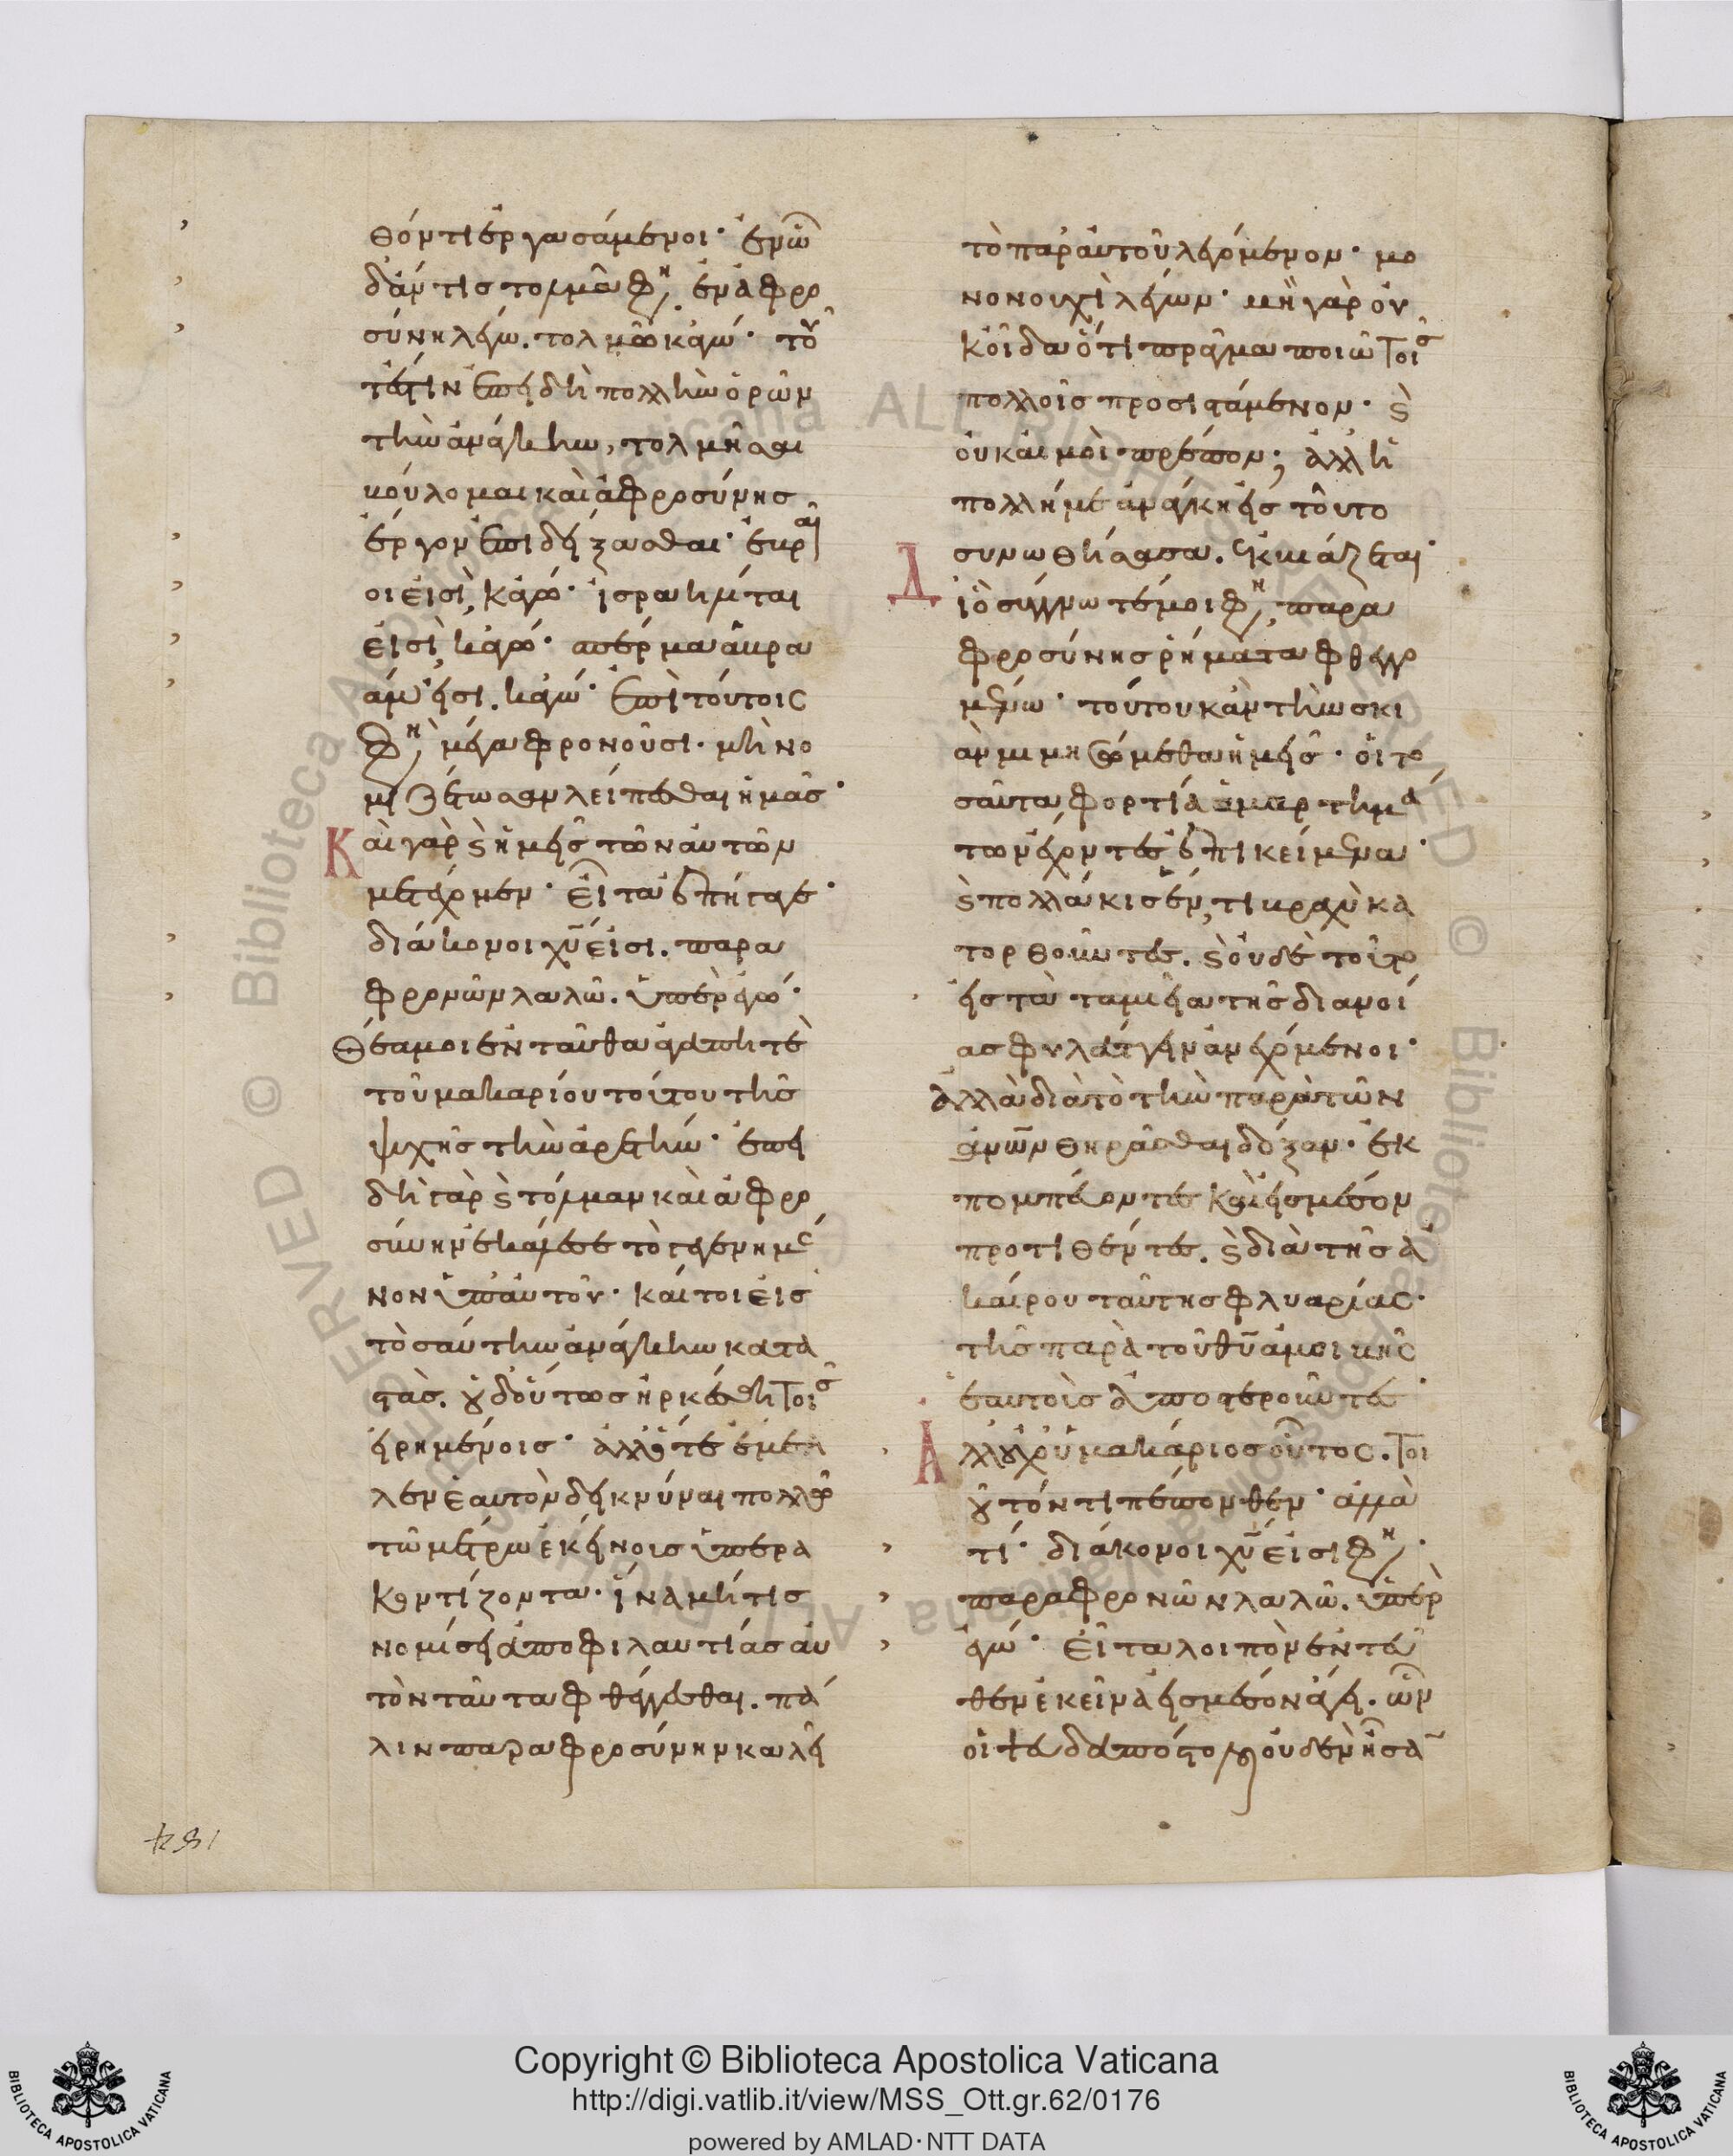 θόντι ἐργασάμενοι· ἐν ὧ
δ' ἄν τις τολμᾶ φη, ἐν ἀφρο
σύνη λέγω. τολμῶ κἀγώ· του
τέστιν ἐπειδὴ πολλὴν ὁρῶν
τὴν ἀνάγκην, τολμῆσαι
βούλομαι καὶ ἀφροσύνης
ἔργον ἐπιδείξασθαι· ἑβραῖ
οι εἰσὶ, κἀγώ· ἰσραηλῖται
εἰσὶ, κἀγώ· σπέρμα ἀβρα
άμ εἰσι. κἀγώ· ἐπὶ τούτοις
φη, μέγα φρονοῦσι. μὴ νο
μιζέτωσαν λείπεσθαι ἡμᾶς·
Καὶ γὰρ καὶ ἡμεῖς τῶν αὐτῶν
μετέχομεν· εἶτα ἐπήγαγε·
διάκονοι χυ εἰσι. παρα
φρονῶν λαλῶ. ὑπὲρ ἐγώ·
Θέα μοι ἐνταῦθα ἀγαπητὲ
τοῦ μακαρίου τούτου τῆς
ψυχῆς τὴν ἀρετήν· ἐπει
δὴ γὰρ καὶ τόλμαν καὶ ἀφρο
σύνην ἐκάλεσε τὸ γεγενημέ
νον ὑπ' αὐτοῦ· καίτοι εἰς
τοσαύτην ἀνάγκην κατα
στὰς. οὐδ' οὕτως ἠρκέσθη τοῖς
εἰρημένοις· ἀλλ' ὅτε ἔμελ
λεν ἑαυτὸν δεικνύναι πολλῶ
τῶ μέτρω ἐκείνοις ὑπερα
κοντίζοντα· ἵνα μή τις
νομίση ἀπὸ φιλαυτίας αὐ
τὸν ταῦτα φθέγγεσθαι. πά
λιν παραφροσύνην καλεῖ
τὸ παρ' αὐτοῦ λεγόμενον· μο
νονουχὶ λέγων· μὴ γὰρ οὐ
κ οἶδα ὅτι πρᾶγμα ποιῶ τοῖς
πολλοῖς προσιστάμενον· καὶ
οὐκ ἐμοὶ πρέπον; ἀλλ' ἡ
πολλή με ἀνάγκη εἰς τοῦτο
συνωθήσασα. ἐκβιάζεται·
Διὸ σύγγνωτέ μοι φη, παρα
φροσύνης ῥήματα φθεγγο
μένω· τούτου κἂν τὴν σκι
ὰν μιμησώμεθα ἡμεῖς· οἱ το
σαῦτα φορτία ἁμαρτημά
των ἔχοντες ἐπικείμενα·
καὶ πολλάκις ἕν, τι βραχὺ κα
τορθοῦντες. καὶ οὐδὲ τοῦτο
εἰς τὰ ταμιεῖα τῆς διανοί
ας φυλάττειν ἀνεχόμενοι·
ἀλλὰ διὰ τὸ τὴν παρὰ τῶν
ἀνων θηρᾶσθαι δόξαν· ἐκ
πομπεύοντες καὶ εἰς μέσον
προτιθέντες. καὶ διὰ τῆς ἀ
καίρου ταύτης φλυαρίας·
τῆς παρὰ τοῦ θυ ἀμοιβῆς
ἑαυτοὺς ἀποστεροῦντες·
Ἀλλ' οὐχ ὁ μακάριος οὗτος. τοι
οῦτόν τι πέπονθεν· ἀλλὰ
τί· διάκονοι χυ εἰσι φη·
παραφρονῶν λαλῶ. ὑπὲρ
ἐγώ· εἶτα λοιπὸν ἐντεῦ
θεν ἐκεῖνα εἰς μέσον ἄγει. ὧν
οἱ ψευδαπόστολοι οὐδὲν ἦσα